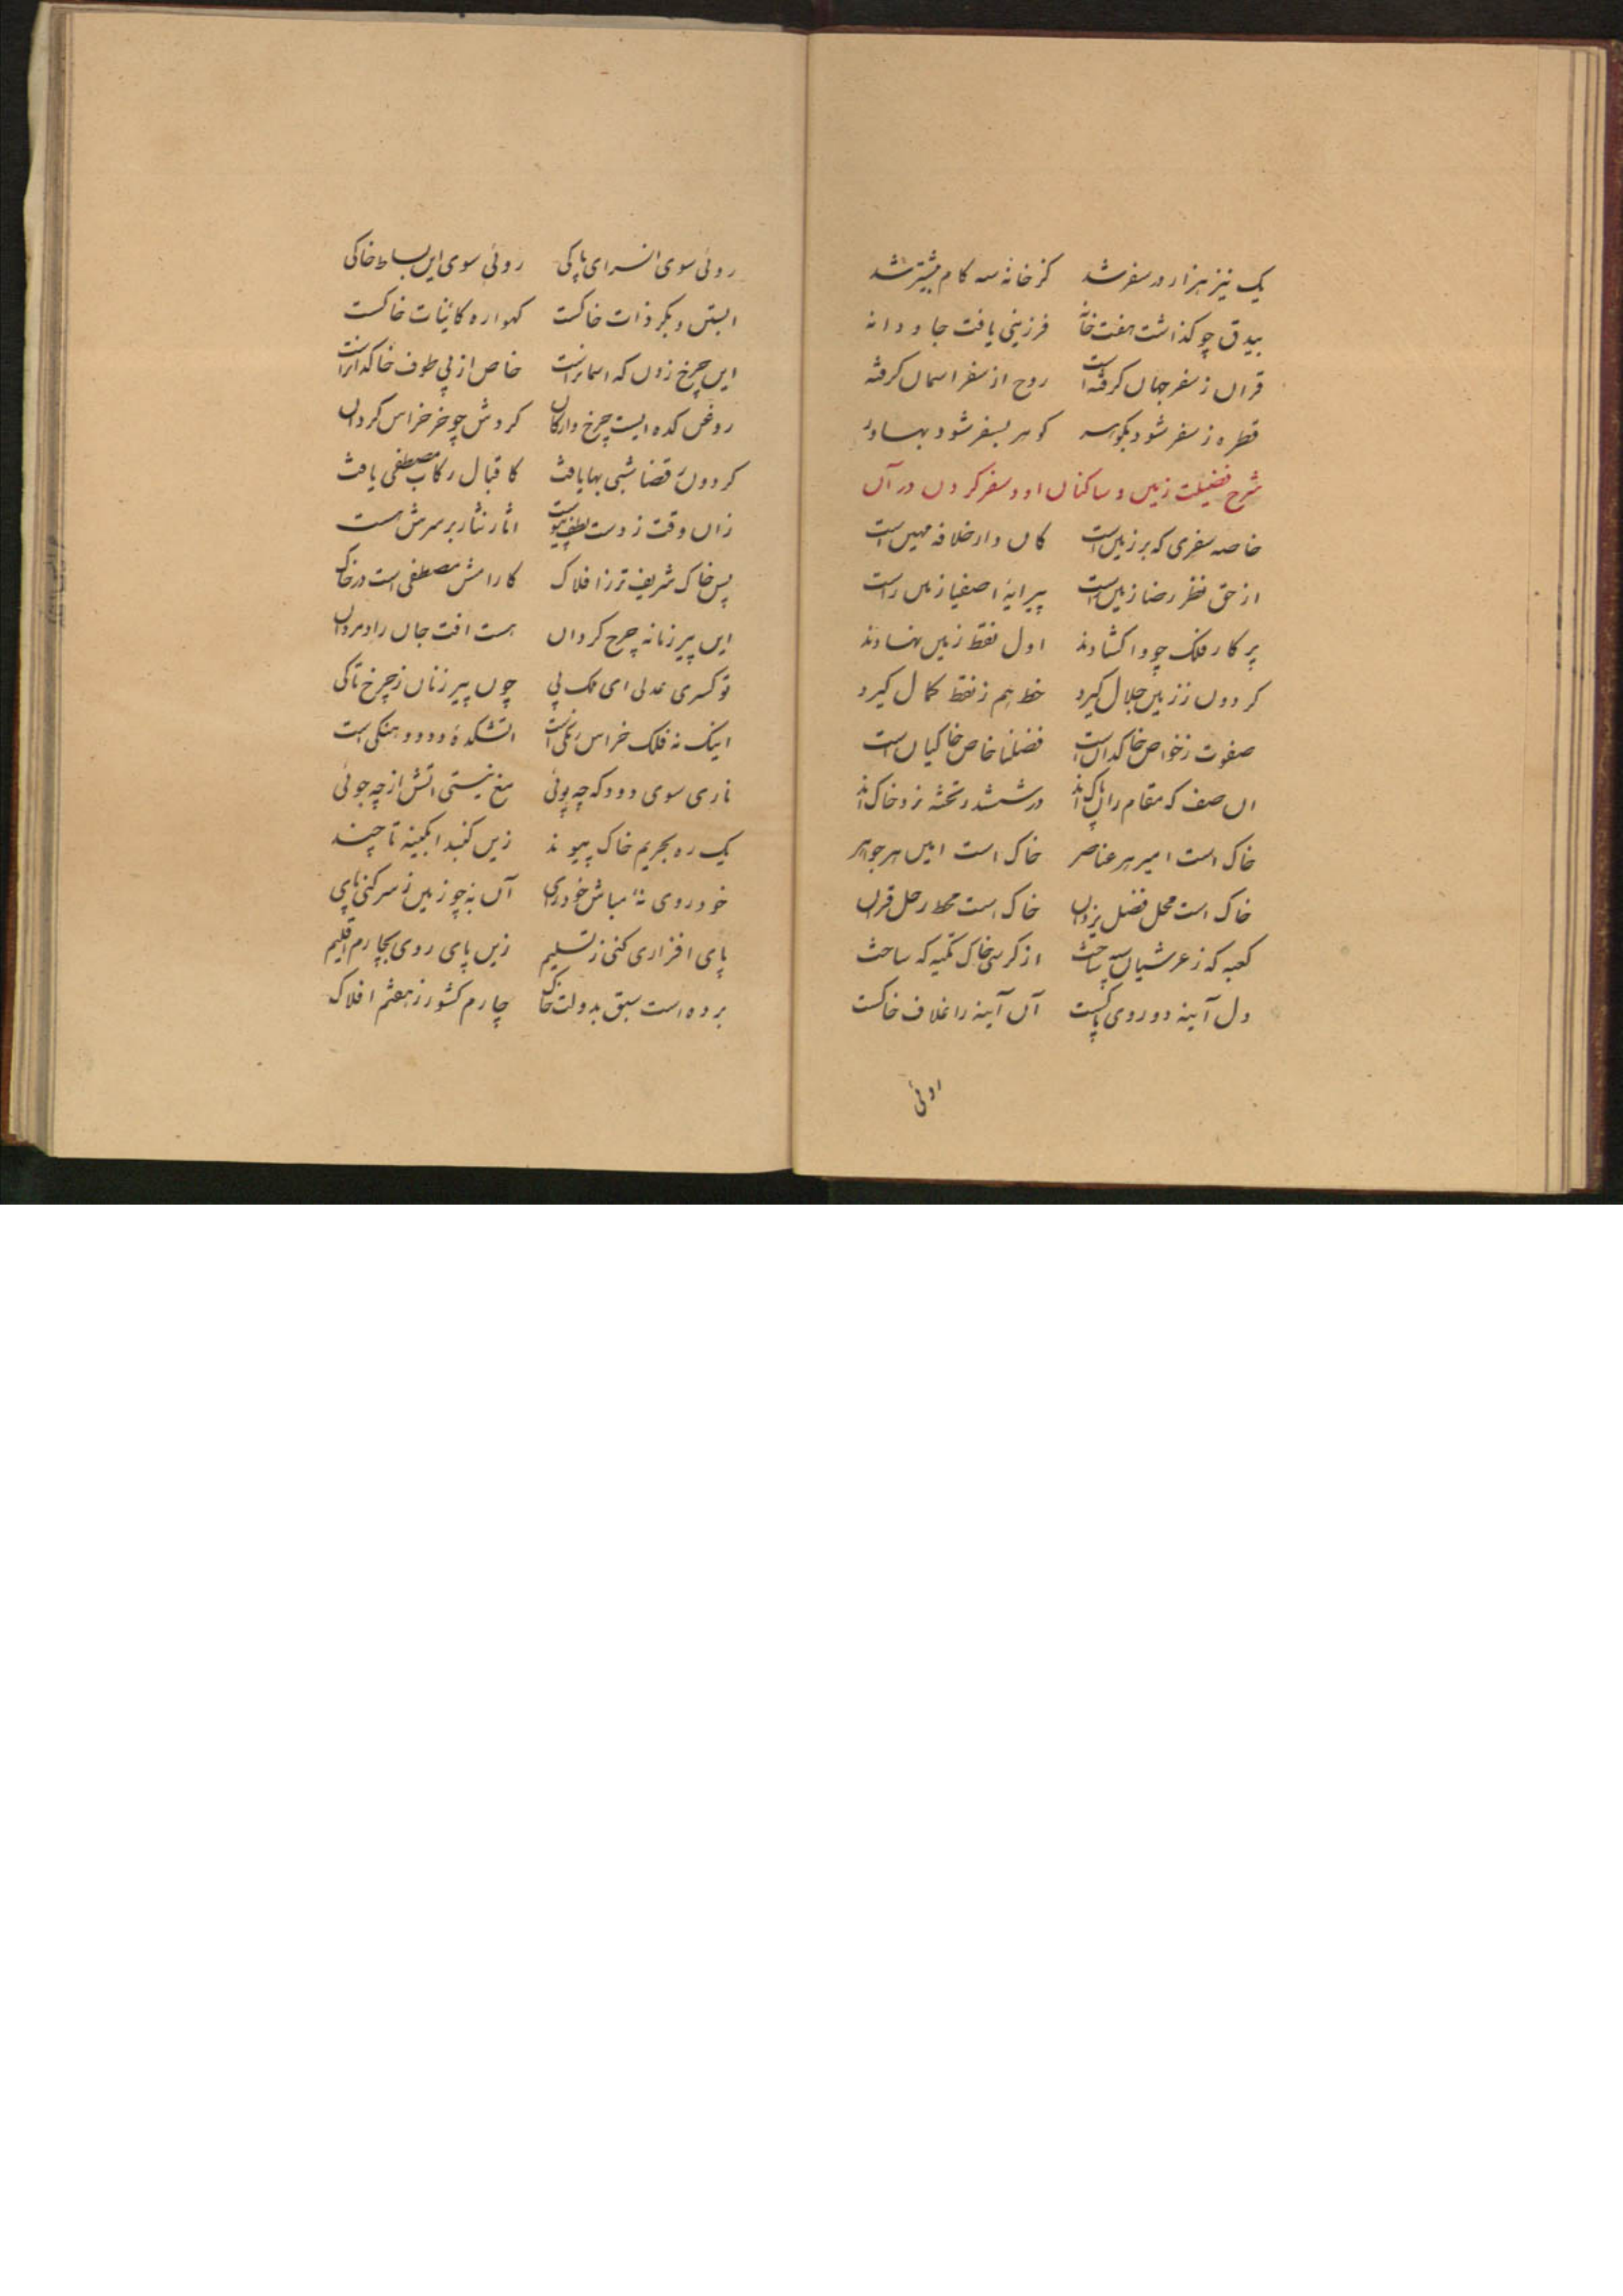 یک نیز هزار در سفر شد کز خانه سه کام پیشتر شد
بیدق چو کذاشت هفت خانه فرزینی یافت جاودانه
قران ز سفر جهان کرفته است روح از سفر اسمان کرفته
قطره ز سفر شود بکواسه کوهر بسفر شود بهاور
شرح فضیلت زمین و ساکنان او و سفر کردن در آن
خاصه سفری که بر زمین است کان دار خلافه مهین است
از حق نظر رضا زمین راست پیرایهٔ اصفیا زمین راست
پرکار فلک چو واکشادند اول نقط زمین نهادند
کردون ز زمین جلال کیرد خط هم ز نقط کمال کیرد
صفوت ز خواص خاکدان است فضلنا خاص خاکیان است
ان صف که مقام را پاک اند در ششدر تخته نرد خاک اند
خاک است امیر هر عناصر خاک است امین هر جواهر
خاک است محل فضل یزدان خاک است محط رحل قران
کعبه که ز عرشیان سپه ساخت از کرسی خاک تکیه که ساخت
دل آینه دو روی پاکست آن آینه را غلاف خاکست
روئی سوی انسرای پاکی روئی سوی این بساط خاکی
ابستن و بکر ذات خاکست کهواره کاینات خاکست
این چرخ زدن که اسمانراست خاص از پی طوف خاکدانراست
روغن کده ایست چرخ وارکان کردش چو خر خراس کردان
کردون ز قضا شبی بها یافت کاقبال رکاب مصطفی یافت
زان وقت ز دست لطف پیوست اثار نثار بر سرش هست
پس خاک شریف تر ز افلاک کارامش مصطفی است در خاک
این پیر زمانه چرخ کردان هست افت جان رادمردان
تو کسری عدلی ای ملک پی چون پیر زنان ز چرخ تا کی
اینک نه فلک خراس رنکی است اتشکدهٔ دود و هنکی است
ناری سوی دودکه چه پوئی مغ نیستی اتش از چه جوئی
یک ره بحریم خاک پیوند زین کنبد ابکینه تا چند
خود روی نهٔ مباش خودرای آن به چو زمین ز سر کنی پای
پای افزاری کنی ز تسلیم زین پای روی بچارم اقلیم
برده است سبق بدولت خاک چارم کشور ز هفتم افلاک